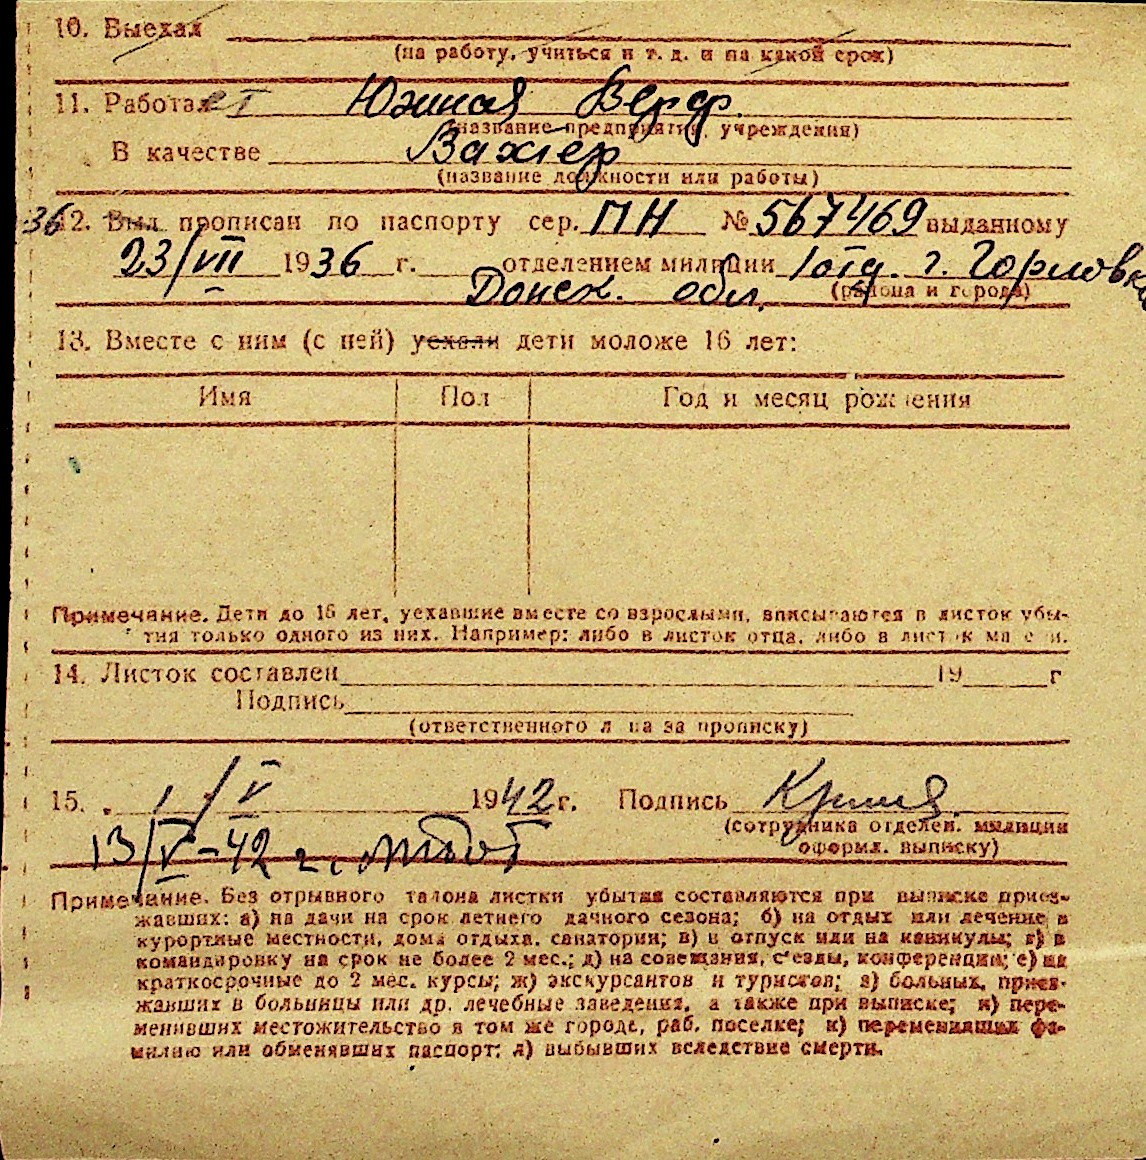 10. Выехал
(на работу, учиться и т. д. и на какой срок)
11. Работает Южная Верфь
(название предприятия, учреждения)
В качестве Вахтер
(название должности или работы)
12. Был прописан по паспорту сер. ПН № 567469 выданному
23/VII 1936 г. отделением милиции 1 отд. г. Горловка
Донск. обл. (района и города)
13. Вместе с ним (с ней) уехали дети моложе 16 лет:
Имя Пол Год и месяц рождения
Примечание. Дети до 16 лет, уехавшие вместе со взрослыми, вписываются в листок убы-
тия только одного из них. Например: либо в листок отца, либо в листок матери.
14. Листок составлен 19 г
Подпись
(ответственного лица за прописку)
15. 1/V 1942 г. Подпись
(сотрудника отделен. милиции
оформл. выписку)
13/V-42 г.
Примечание. Без отрывного талона листки убытия составляются при выписке приез-
жавших: а) на дачи на срок летнего дачного сезона; б) на отдых или лечение в
курортные местности, дома отдыха, санатории; в) в отпуск или на каникулы; г) в
командировку на срок не более 2 мес.; д) на совещания, с'езды, конференции; е) на
краткосрочные до 2 мес. курсы; ж) экскурсантов и туристов; з) больных, приез-
жавших в больницы или др. лечебные заведения, а также при выписке; и) пере-
менивших местожительство в том же городе, раб. поселке; к) переменивших фа-
милию или обменявших паспорт; л) выбывших вследствие смерти.